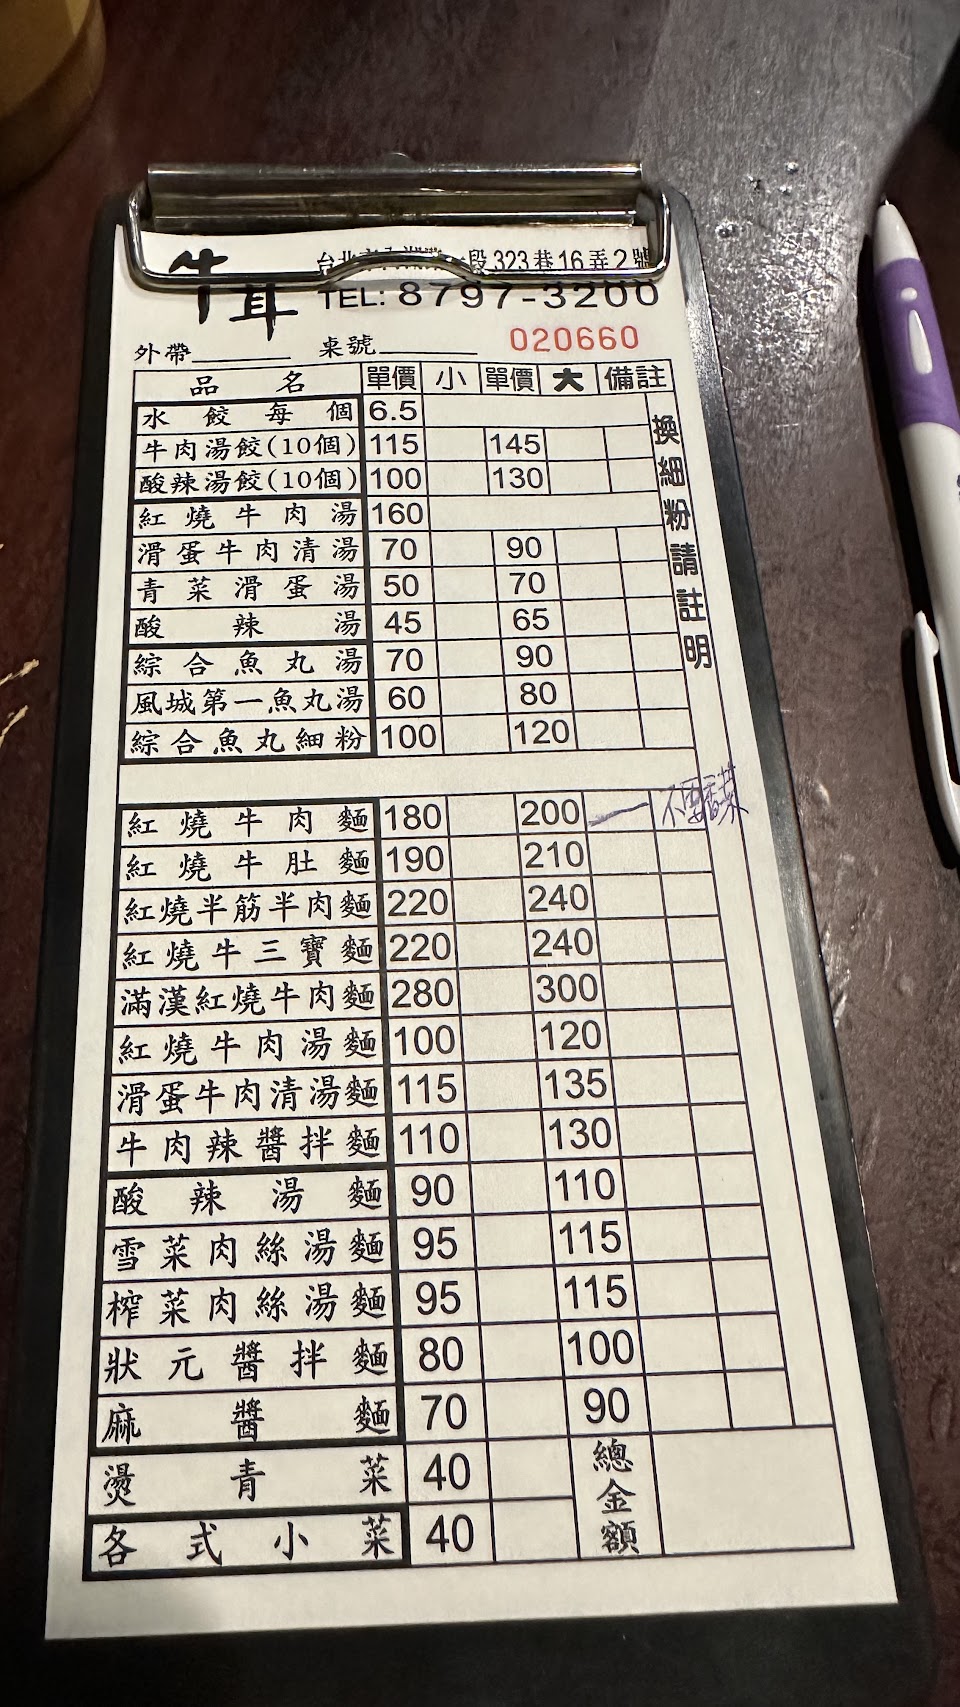 牛茸
段323巷16弄2號
TEL: 8797-3200
外帶 桌號 020660
品名 單價 小 單價 大 備註
水餃每個 6.5
牛肉湯餃(10個) 115 145
酸辣湯餃(10個) 100 130
紅燒牛肉湯 160
滑蛋牛肉清湯 70 90
青菜滑蛋湯 50 70
酸辣湯 45 65
綜合魚丸湯 70 90
風城第一魚丸湯 60 80
綜合魚丸細粉 100 120
換細粉請註明
紅燒牛肉麵 180 200 一 不要香菜
紅燒牛肚麵 190 210
紅燒半筋半肉麵 220 240
紅燒牛三寶麵 220 240
滿漢紅燒牛肉麵 280 300
紅燒牛肉湯麵 100 120
滑蛋牛肉清湯麵 115 135
牛肉辣醬拌麵 110 130
酸辣湯麵 90 110
雪菜肉絲湯麵 95 115
榨菜肉絲湯麵 95 115
狀元醬拌麵 80 100
麻醬麵 70 90
燙青菜 40
各式小菜 40
總金額